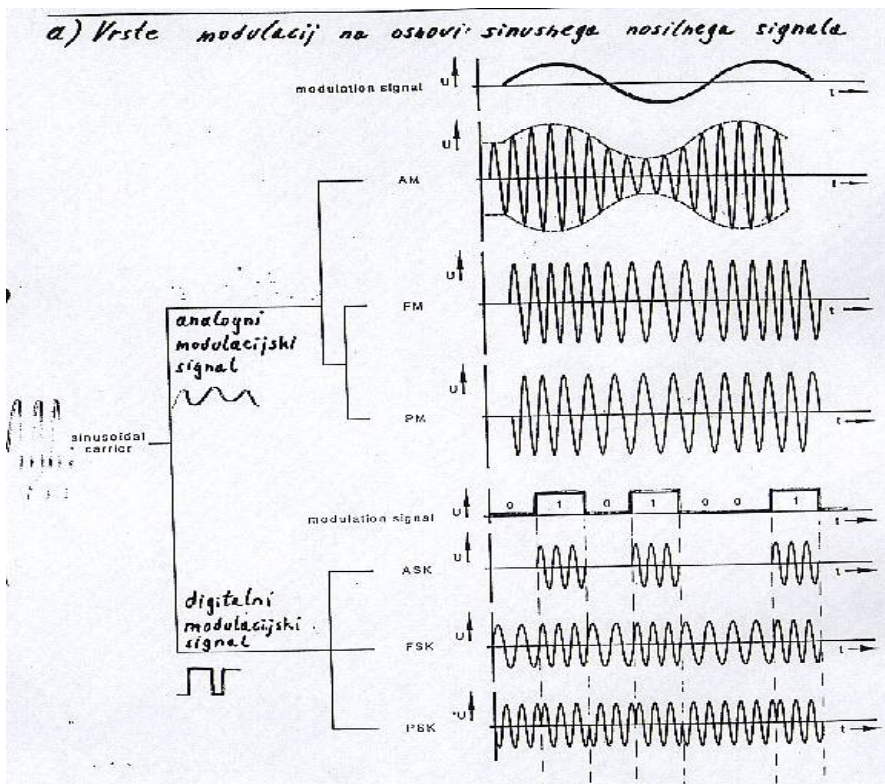 a) Vrste modulacij na osnovi sinusnega nosilnega signala
modulation signal
U
t
U
AM
t
U
FM
t
analogni
modulacijski
signal
U
PM
t
sinusoidal
carrier
modulation signal
U
0 1 0 1 0 0 1
t
U
ASK
t
digitalni
modulacijski
signal
U
FSK
t
U
PSK
t